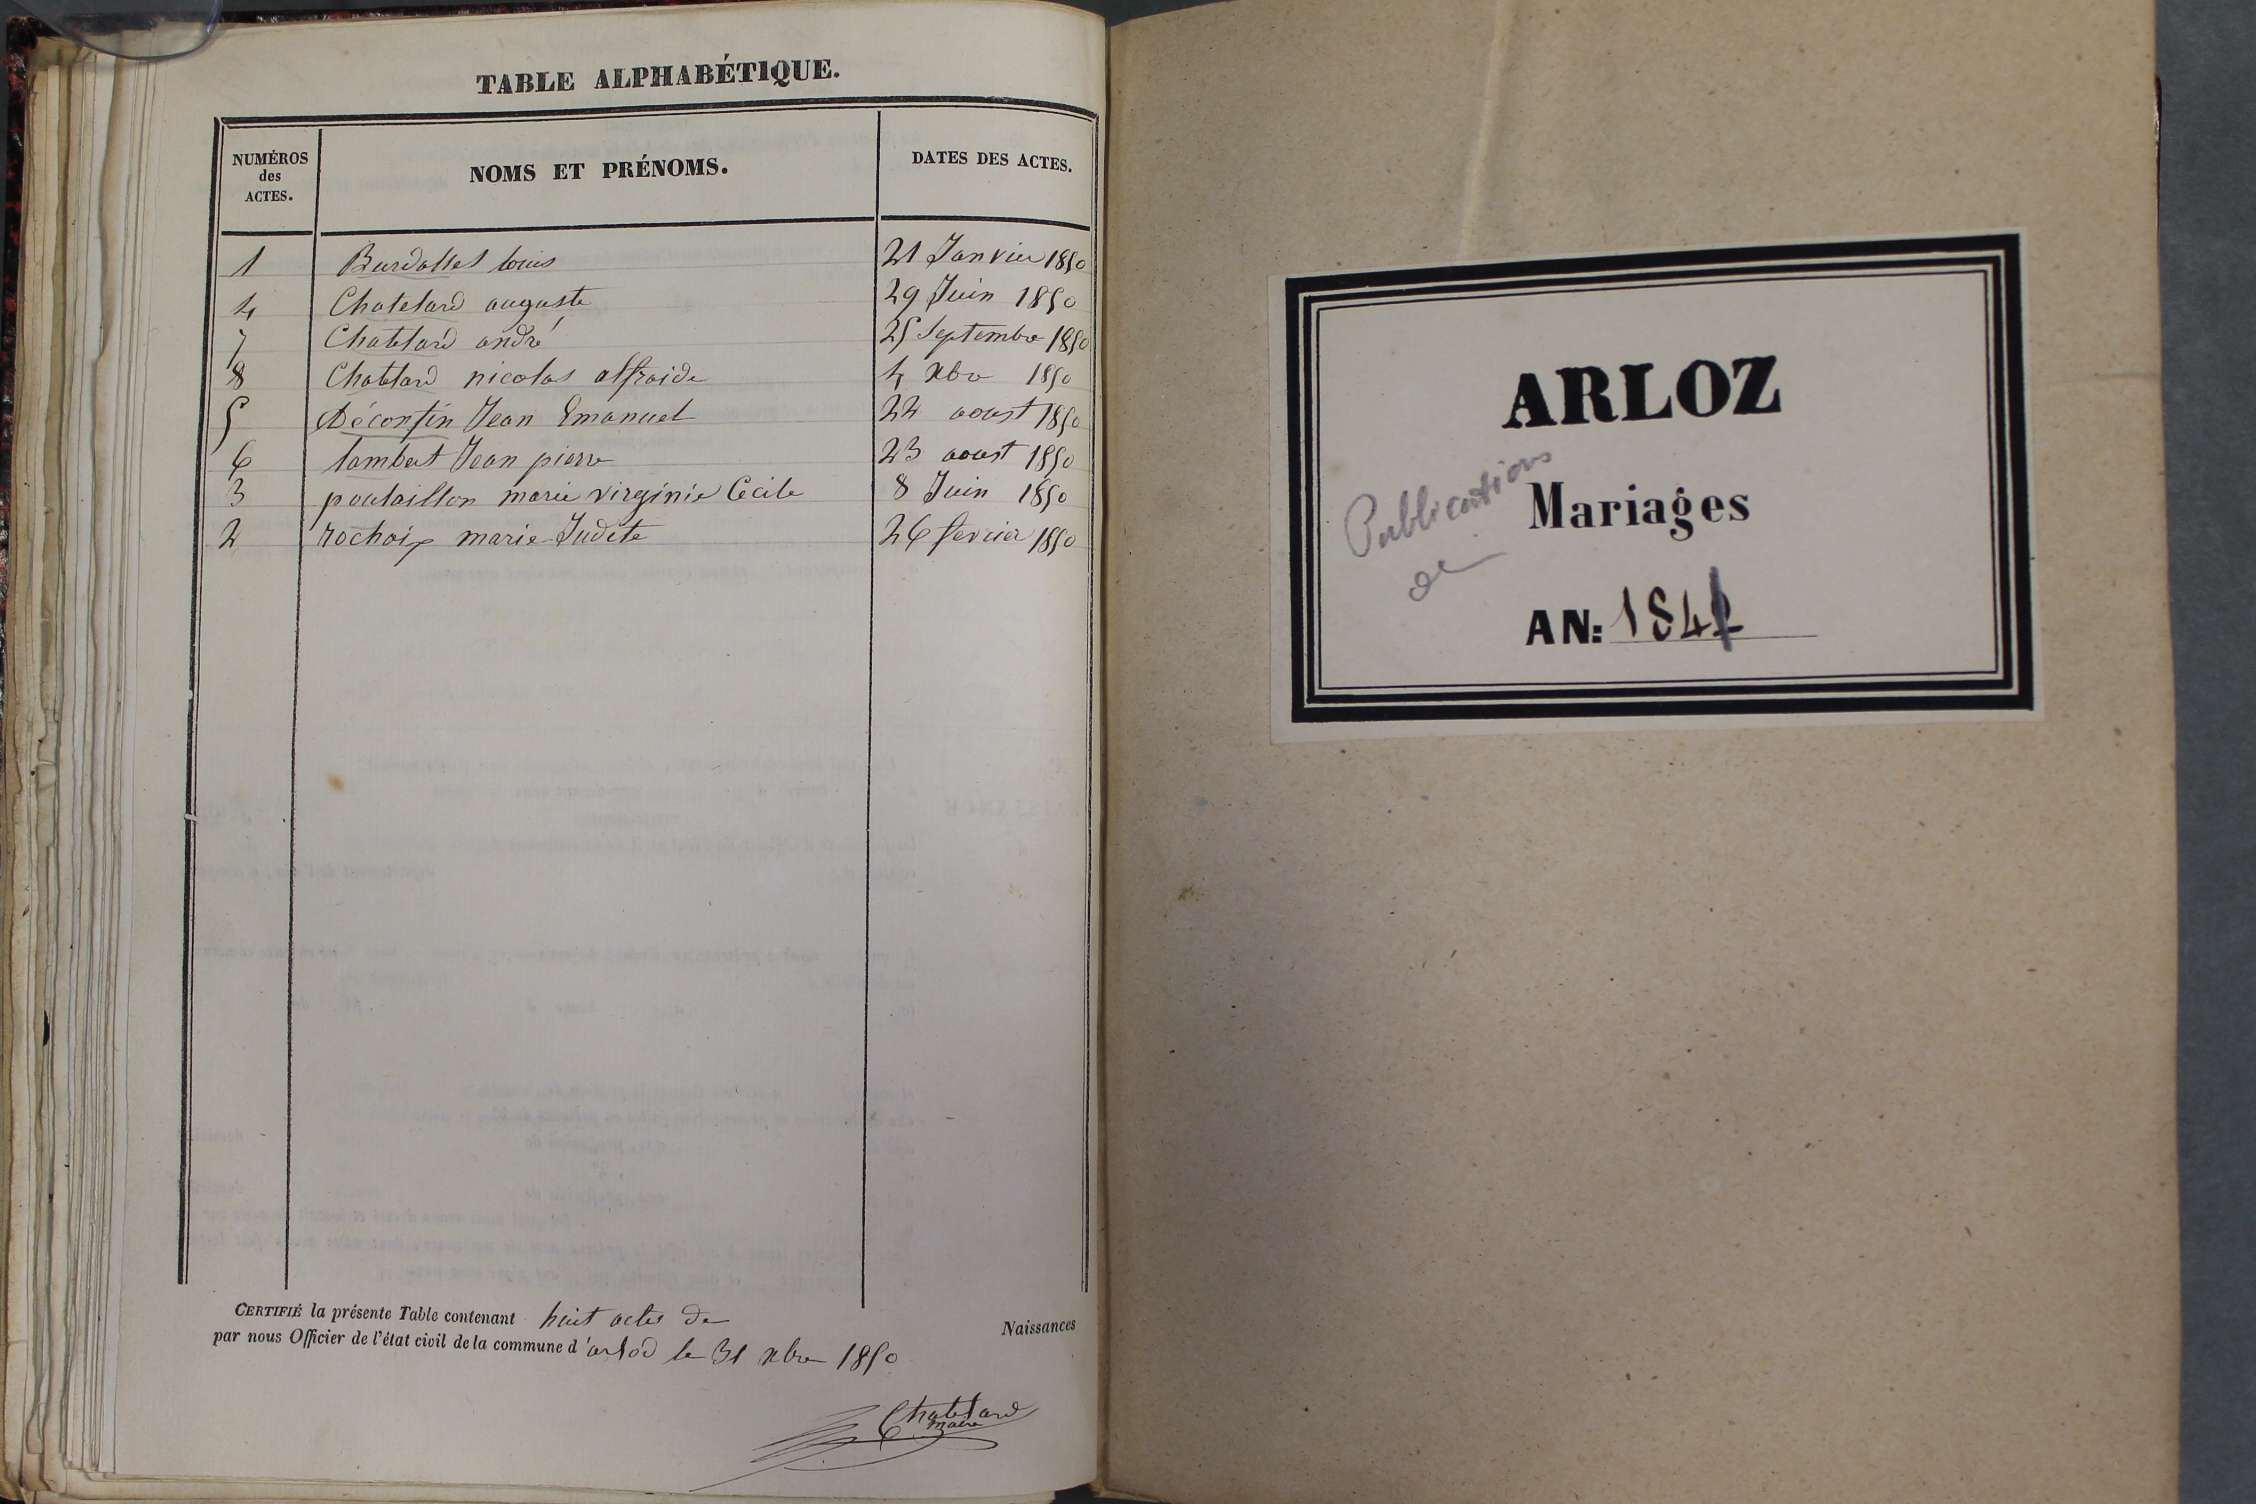 TABLE ALPHABÉTIQUE.
NUMÉROS
des
ACTES.
NOMS ET PRÉNOMS.
DATES DES ACTES.
1 Burdallet louis 21 Janvier 1850
4 Chatelard auguste 29 Juin 1850
7 Chatelard andré 25 Septembre 1850
8 Chatelard nicolas alfraide 4 xbre 1850
5 Décontin Jean Emanuel 22 aoust 1850
6 lambert Jean pierre 23 aoust 1850
3 poulaillon marie virginie Cecile 8 Juin 1850
2 rochaix marie Judite 26 fevrier 1850
CERTIFIÉ la présente Table contenant huit actes de Naissances
par nous Officier de l'état civil de la commune d'arlod le 31 xbre 1850
Chatelard
maire
ARLOZ
Publications
de
Mariages
AN: 184